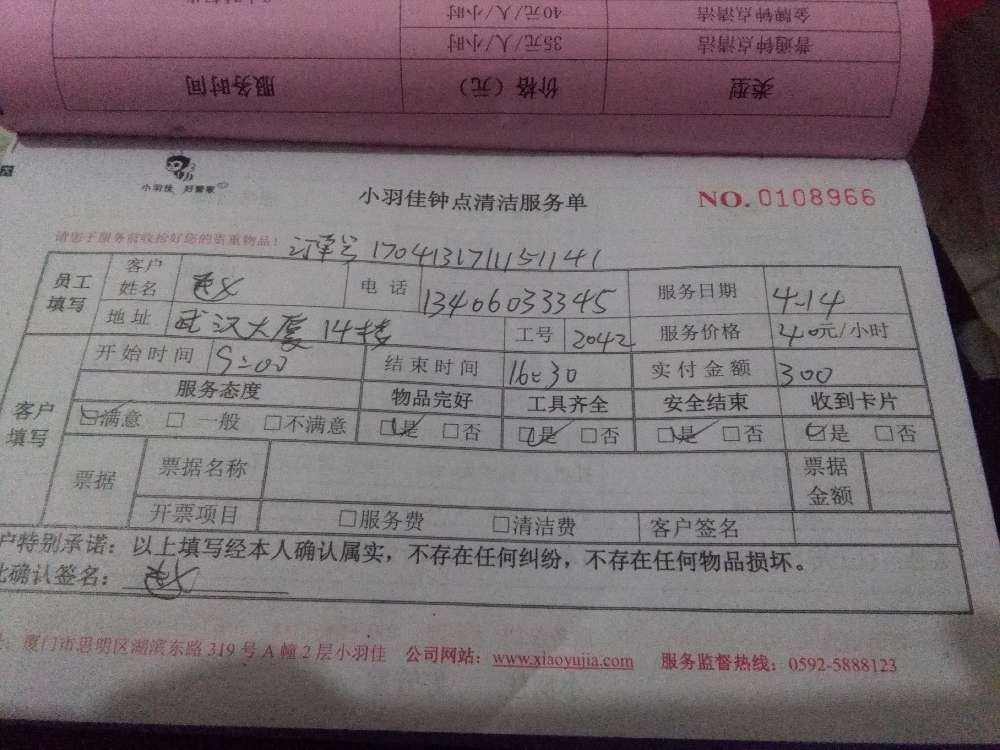 金牌钟点清洁 40元/人/小时
普通钟点清洁 35元/人/小时
类型 价格（元） 服务时间
小羽佳 好管家
小羽佳钟点清洁服务单 NO. 0108966
请您于服务前收捡好您的贵重物品！ 订单号 1704131711151141
员工填写 客户姓名 电话 13406033345 服务日期 4.14
地址 武汉大厦14楼 工号 2042 服务价格 40元/小时
客户填写 开始时间 9:00 结束时间 16:30 实付金额 300
服务态度 物品完好 工具齐全 安全结束 收到卡片
☑满意 □一般 □不满意 ☑是 □否 ☑是 □否 ☑是 □否 ☑是 □否
票据 票据名称 票据金额
开票项目 □服务费 □清洁费 客户签名
户特别承诺：以上填写经本人确认属实，不存在任何纠纷，不存在任何物品损坏。
此确认签名：
厦门市思明区湖滨东路319号A幢2层小羽佳 公司网站：www.xiaoyujia.com 服务监督热线：0592-5888123